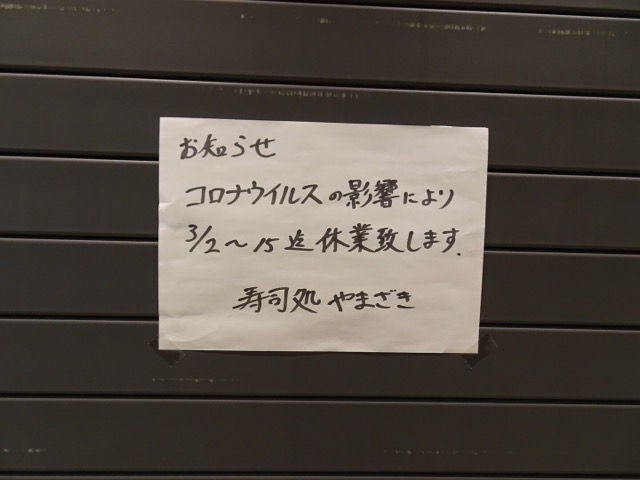 お知らせ
コロナウイルスの影響により
3/2～15迄休業致します.
寿司処やまざき